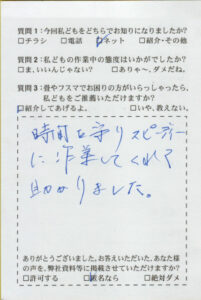 質問1:今回私どもをどちらでお知りになりましたか?
□チラシ □電話 □ネット □紹介・その他
質問2:私どもの作業中の態度はいかがでしたか?
□ま、いいんじゃない? □ありゃ〜、ダメだね。
質問3:畳やフスマでお困りの方がいらっしゃったら、
私どもをご推薦いただけますか?
□紹介してあげるよ。 □いや、教えない。
時間を守りスピーディー
に作業してくれて
助かりました。
ありがとうございました。お答えいただいた、あなた様
の声を、弊社資料等に掲載させていただけますか?
□許可する □匿名なら □絶対ダメ